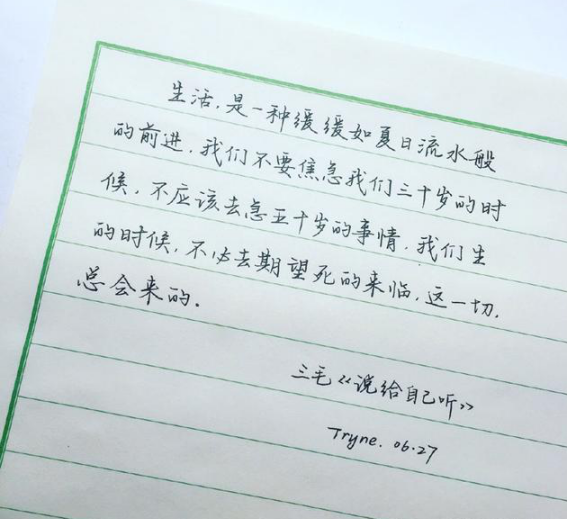 生活,是一种缓缓如夏日流水般
的前进,我们不要焦急我们三十岁的时
候,不应该去急五十岁的事情,我们生
的时候,不必去期望死的来临,这一切,
总会来的。
三毛《说给自己听》
Tryne. 06.27